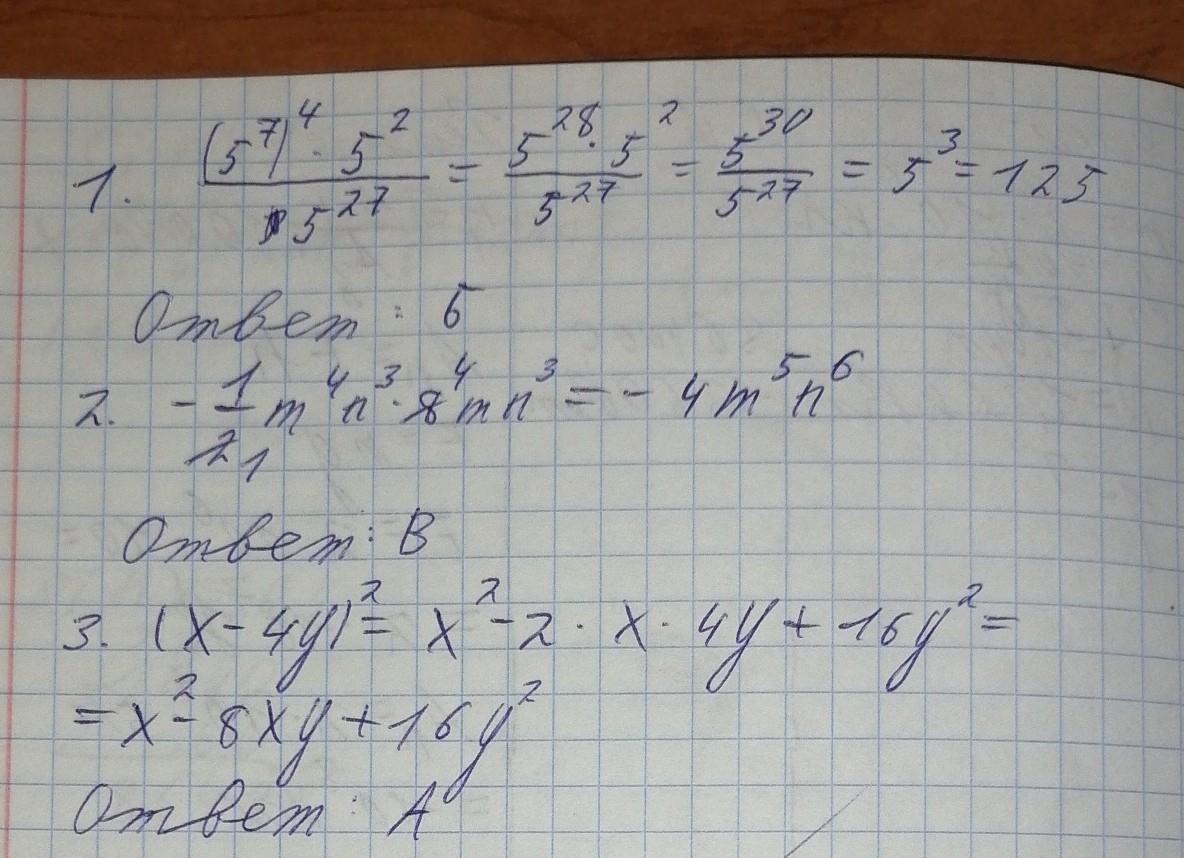 1. (5^7)^4 · 5^2 / 5^27 = 5^28 · 5^2 / 5^27 = 5^30 / 5^27 = 5^3 = 125
Ответ: Б
2. -1/2 1 m^4 n^3 · 8 4 m n^3 = - 4 m^5 n^6
Ответ: В
3. (x - 4y)^2 = x^2 - 2 · x · 4y + 16y^2 =
= x^2 - 8xy + 16y^2
Ответ: А